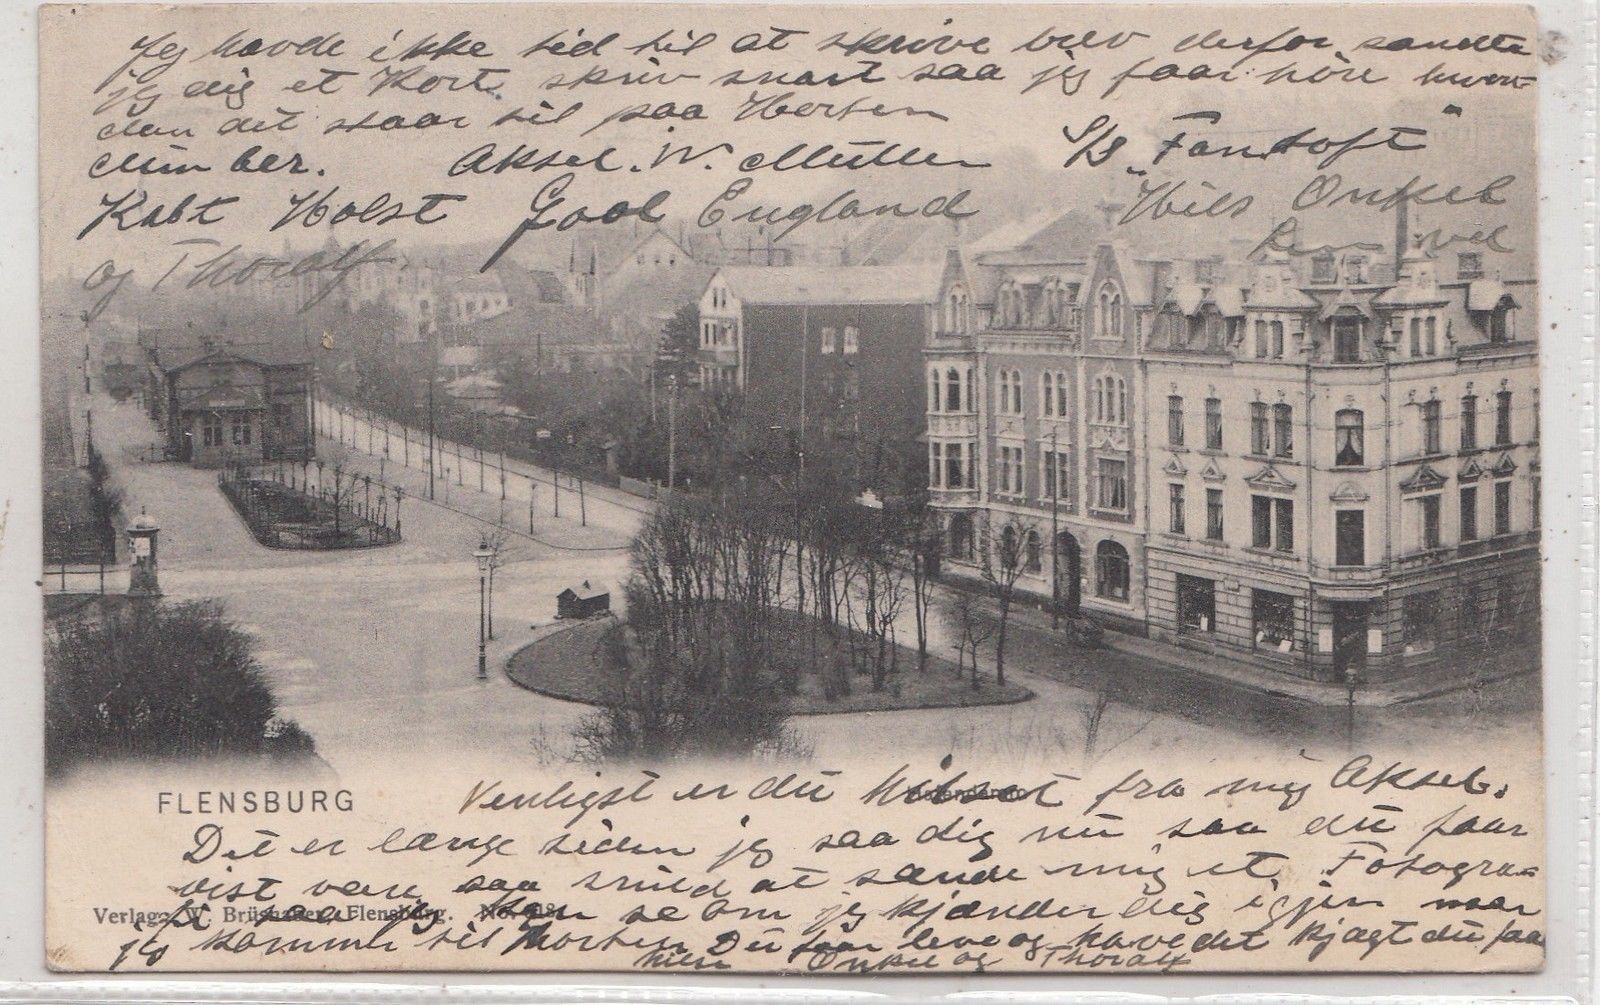 Jeg havde ikke tid til at skrive brev derfor sændte
jeg dig et Kort, skriv snart saa jeg faar höre hvor-
dan det staar til paa Horten
Min ber. Aksel. W. Müller S/S „Fantoft"
Kabt Holst Goole England Hils Onkel
og Thoralf vel
FLENSBURG
Venligst er du hilset fra mig Aksel.
Det er længe siden jeg saa dig nu saa du faar
vist være saa snild at sænde mig et Fotogra-
fi saa jeg kan se om jeg kjænder dig igjen naar
Verlag: W. Flensburg. No.
jeg kommer til Horten Du faar leve og have det kjægt du faar
hilse Onkel og Thoralf